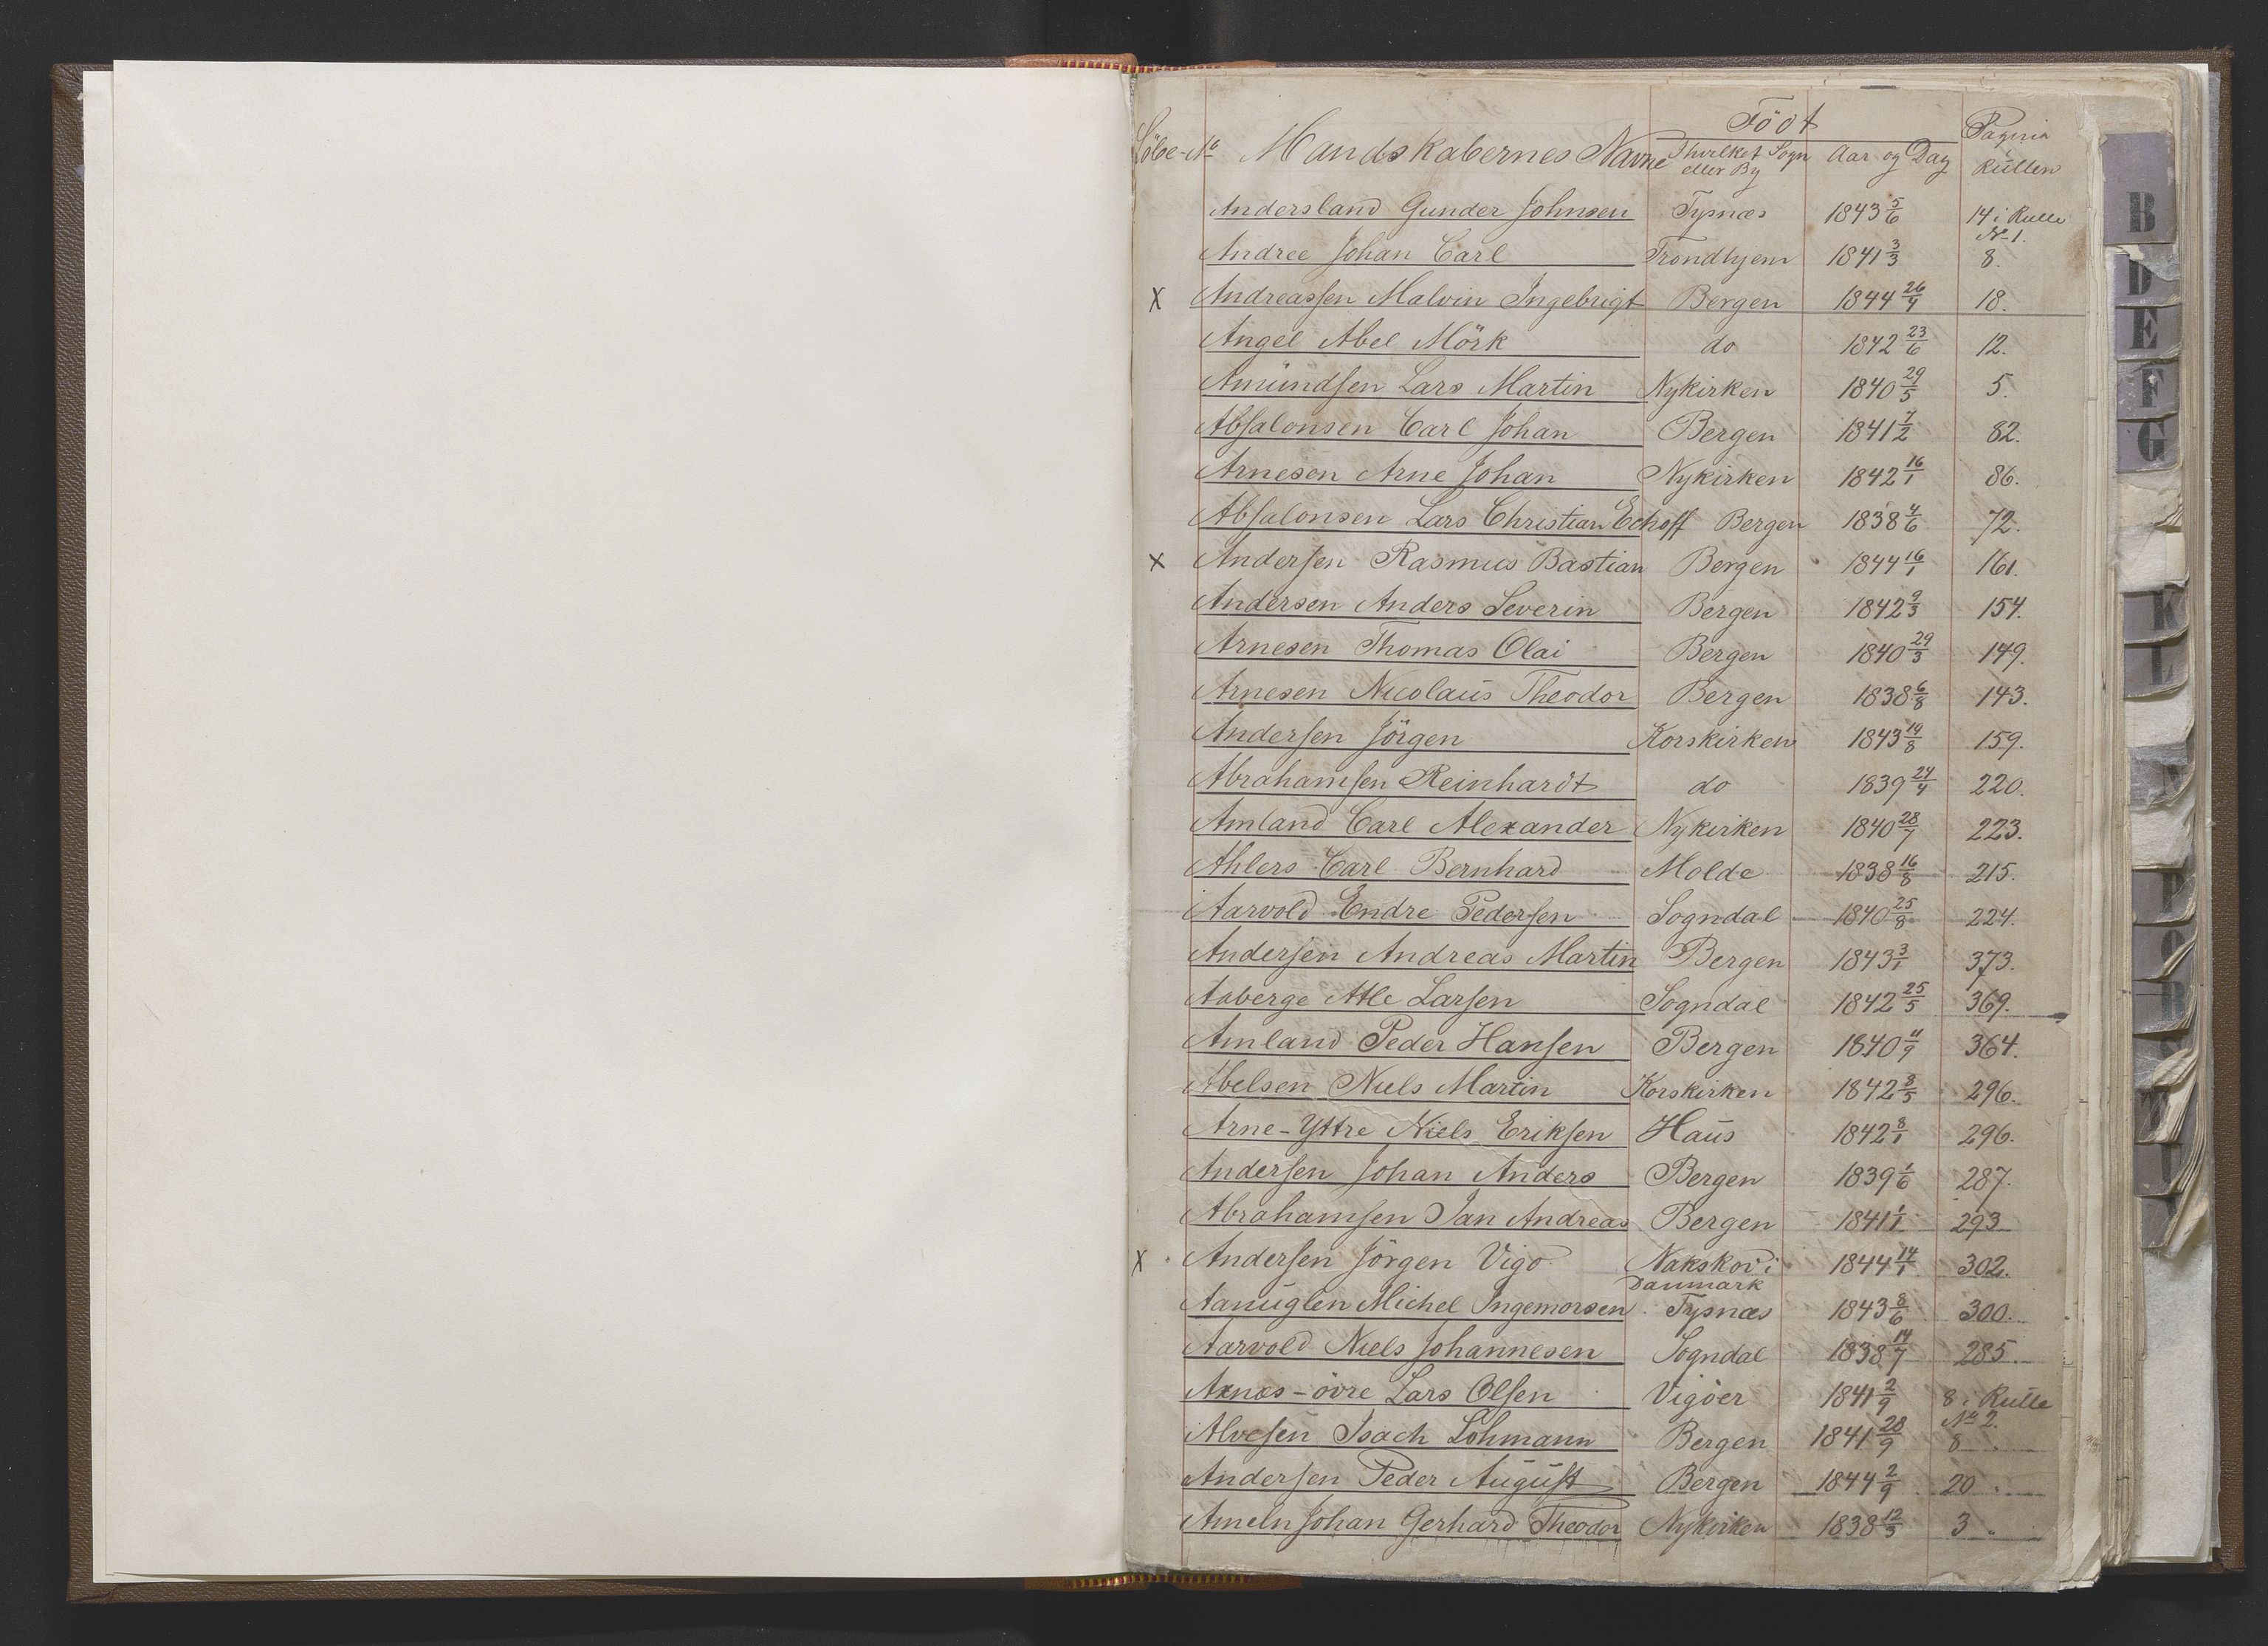 Löbe-No Mandskabernes Navne Födt Pagina i Rullen
I hvilket Sogn eller By Aar og Dag
Andersland Gunder Johnsen Tysnæs 1843 5/6 14 i Rulle No 1.
Andree Johan Carl Trondhjem 1841 3/3 8.
X Andreassen Malvin Ingebrigt Bergen 1844 26/4 18.
Angel Abel Mörk do 1842 23/6 12.
Amundsen Lars Martin Nykirken 1840 29/5 5.
Absalonsen Carl Johan Bergen 1841 7/2 82.
Arnesen Arne Johan Nykirken 1842 16/1 86.
Absalonsen Lars Christian Echoff Bergen 1838 4/6 72.
X Andersen Rasmus Bastian Bergen 1844 16/1 161.
Andersen Anders Severin Bergen 1842 9/3 154.
Arnesen Thomas Olai Bergen 1840 29/3 149.
Arnesen Nicolaus Theodor Bergen 1838 6/8 143.
Andersen Jörgen Korskirken 1843 19/8 159.
Abrahamsen Reinhardt do 1839 24/4 220.
Amland Carl Alexander Nykirken 1840 28/7 223.
Ahlers Carl Bernhard Molde 1838 16/8 215.
Aarvold Endre Pedersen Sogndal 1840 25/8 224.
Andersen Andreas Martin Bergen 1843 3/1 373.
Aaberge Atle Larsen Sogndal 1842 25/5 369.
Amland Peder Hansen Bergen 1840 11/9 364.
Abelsen Niels Martin Korskirken 1842 8/5 296.
Arne-Yttre Niels Eriksen Haus 1842 8/1 296.
Andersen Johan Anders Bergen 1839 1/6 287.
Abrahamsen Jan Andreas Bergen 1841 1/1 293
X Andersen Jörgen Vigo Nakskov i Danmark 1844 14/1 302.
Aanuglen Michel Ingemorsen Tysnæs 1843 8/6 300.
Aarvold Niels Johannesen Sogndal 1838 14/7 285.
Axnæs-övre Lars Olsen Vigöer 1841 2/9 8 i Rulle No 2.
Alvesen Isach Lohmann Bergen 1841 28/9 8 "
Andersen Peder August Bergen 1844 2/9 20 "
Ameln Johan Gerhard Theodor Nykirken 1838 12/3 3 "
B
D
E
F
G
K
L
N
P
R